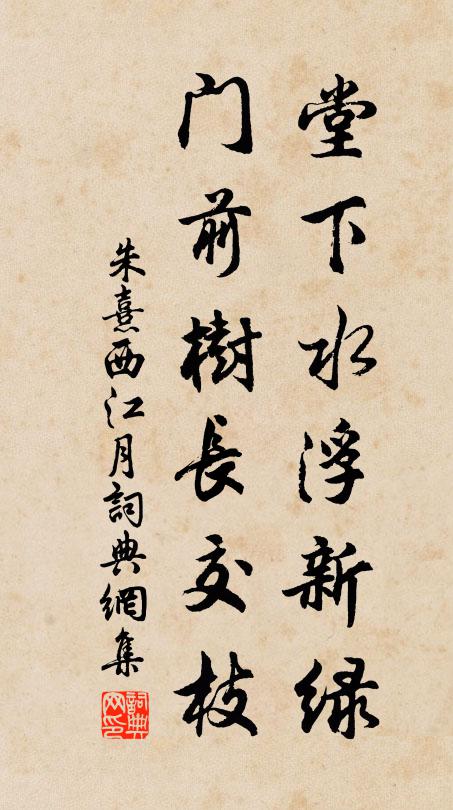 堂下水浮新绿
门前樹長交枝
朱熹西江月詞典網集
詞典网印